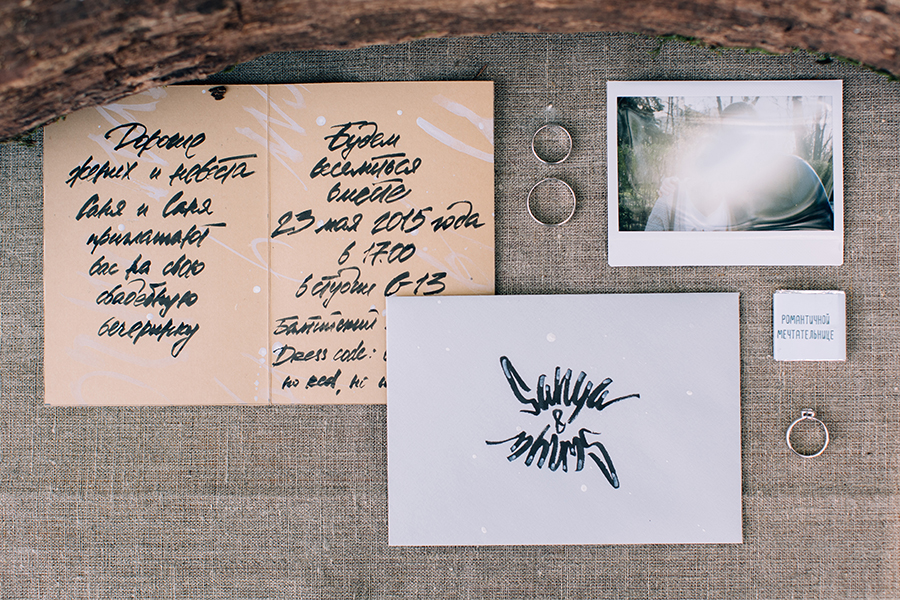 Дорогие
жених и невеста
Саня и Саня
приглашают
вас на свою
свадебную
вечеринку
Будем
веселиться
вместе
23 мая 2015 года
в 17:00
в студии G-13
Dress code:
no red,
Sanya
&
Sanya
РОМАНТИЧНОЙ
МЕЧТАТЕЛЬНИЦЕ